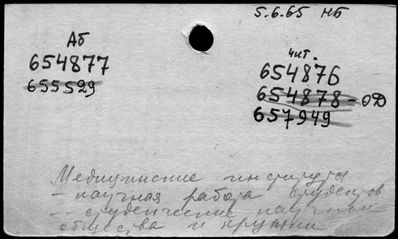 5.6.65 НБ
Аб
654877
655529
чит.
654876
654878 - ОФ
657949
Медицинские институты
- научная работа студентов
- студенческие научные
общества и кружки